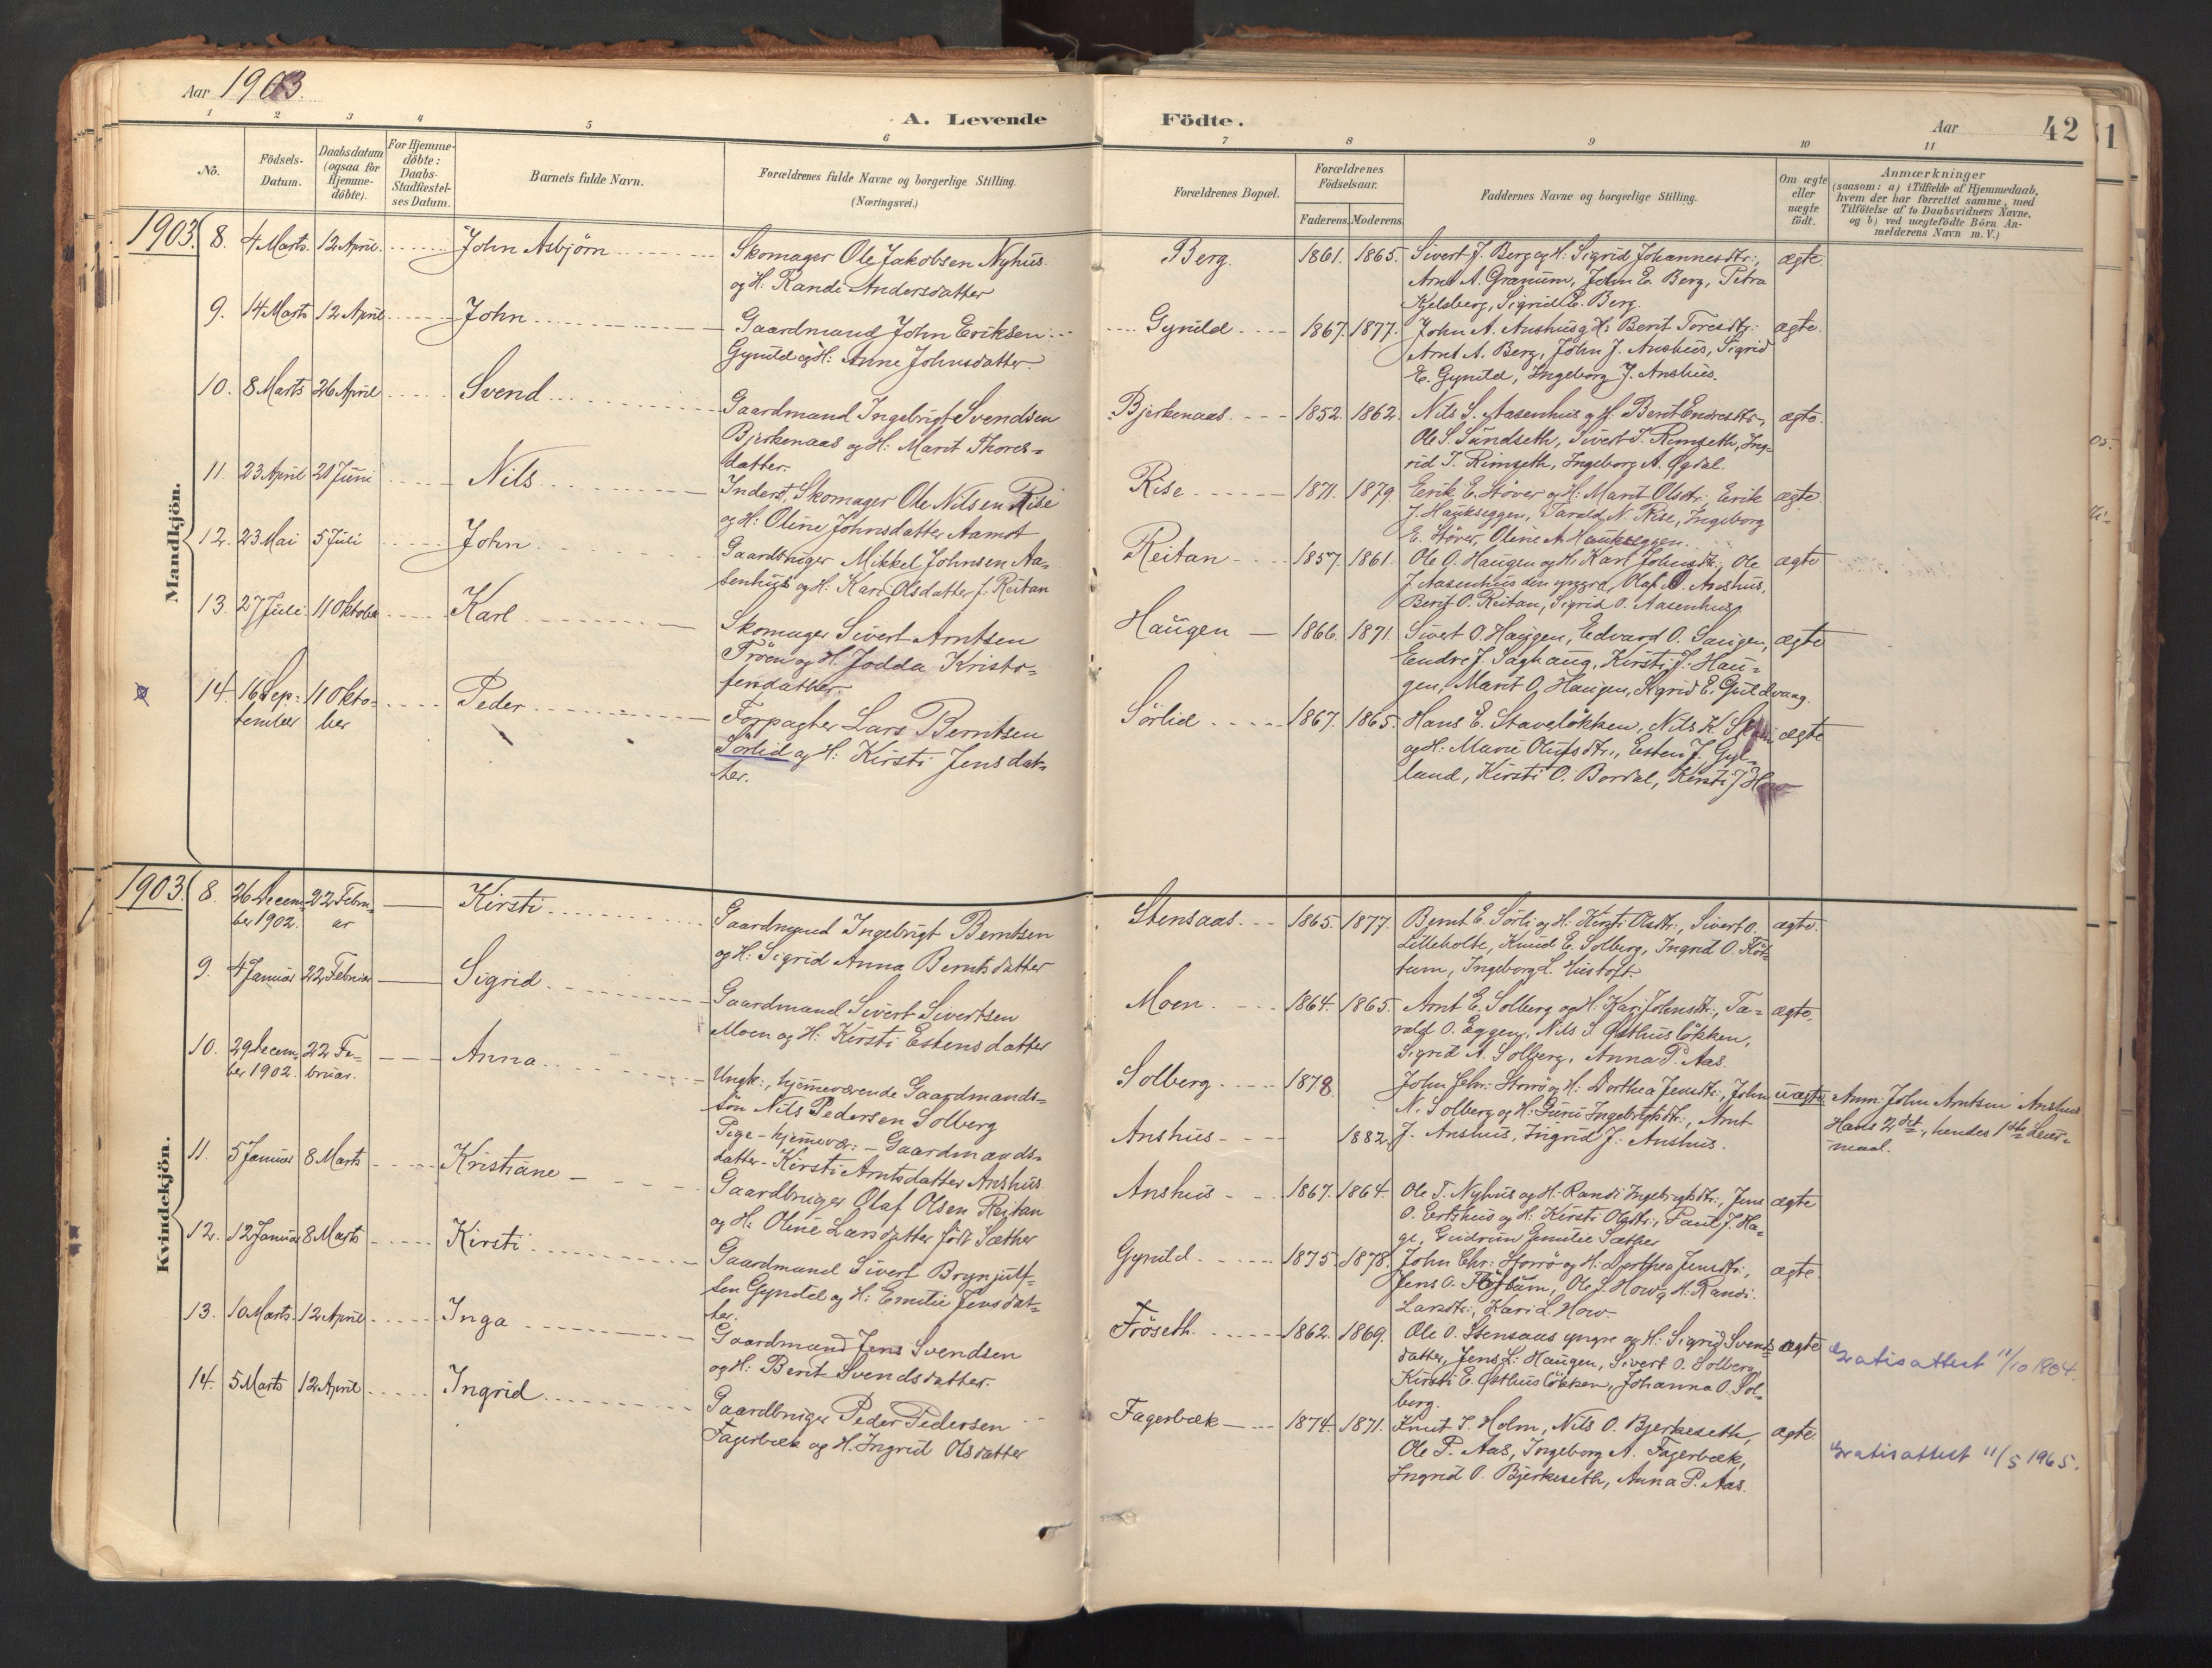 Aar 1903.
A. Levende
Födte.
Aar
42
1 2 3 4 5 6 7 8 9 10 11
No.
Födsels-Datum.
Daabsdatum (ogsaa for Hjemmedöbte).
For Hjemmedöbte: Daabs-Stadfæstelses Datum.
Barnets fulde Navn.
Forældrenes fulde Navne og borgerlige Stilling. (Næringsvei.)
Forældrenes Bopæl.
Forældrenes Födselsaar.
Faderens. Moderens.
Faddernes Navne og borgerlige Stilling.
Om ægte eller uægte födt.
Anmærkninger
(saasom: a) i Tilfælde af Hjemmedaab, hvem der har forrettet samme, med Tilföielse af to Daabsvidners Navne, og b) ved uægtefödte Börn Anmelderens Navn m. V.)
Mandkjön.
1903. 8. 4 Marts. 12 April. John Asbjörn
Skomager Ole Jakobsen Nyhus.
og H. Randi Andersdatter
Berg. 1861. 1865.
Sivert J. Berg og H: Sigrid Johannesdtr.,
Arnt A. Granum, John E. Berg, Petra
Kjelsberg, Sigrid E. Berg.
ægte.
9. 14 Marts 12 April John
Gaardmand John Eriksen
Gynild og H: Anne Johnsdatter.
Gynild 1867. 1877.
John A. Anshus og H: Berit Toresdtr:
Arnt A. Berg, John J. Anshus, Sigrid
E. Gynild, Ingeborg J. Anshus.
ægte.
10. 8 Marts 26 April Svend
Gaardmand Ingebrigt Svendsen
Bjerkenaas og H: Marit Thores-
datter.
Bjerkenaas 1852. 1862.
Nils S. Aasenhus og H. Berit Endresdtr.,
Ole S. Sundseth, Sivert T. Rimseth, Ing-
rid T. Rimseth, Ingeborg A. Ogdal.
ægte.
11. 23 April 21 Juni Nils
Inderst, Skomager Ole Nilsen Rise
og H: Oline Johnsdatter Aamot
Rise 1871. 1879.
Eerik E. Stöver og H: Marit Olsdtr: Eerik
J. Haukseggen, Tarald N. Rise, Ingeborg
E. Stöver, Oline A. Haukseggen.
ægte.
12. 23 Mai 5 Juli John
Gaardbruger Mikkel Johnsen Aa-
senhus og H: Kari Olsdatter f. Reitan
Reitan 1857. 1861.
Ole O. Haugen og H: Kari Johnsdtr., Ole
J. Aasenhus den yngre, Olaf O. Anshus,
Berit O. Reitan, Sigrid O. Aasenhus.
ægte
13. 27 Juli 11 Oktober Karl
Skomager Sivert Arntsen
Tröen og H. Jodda Kristo-
fersdatter.
Haugen 1866. 1871.
Sivert O. Haugen, Edvard O. Haugen,
Endre J. Saghaug, Kirsti J. Hau-
gen, Marit O. Haugen, Sigrid E. Guldvaag.
ægte
14. 16 Sep-
tember
11 Okto-
ber
Peder
Forpagter Lars Berntsen
Sörlid og H: Kirsti Jensdat-
ter.
Sörlid 1867. 1865.
Hans E. Stavelökken, Nils K.
og H: Marie Olufsdtr., Esten J. Gyl-
land, Kirsti O. Bordal, Kirsti J. How
ægte
Kvindekjön.
1903. 8. 26 Decem-
ber 1902.
22 Febru-
ar
Kirsti
Gaardmand Ingebrigt Berntsen
og H: Sigrid Anna Berntsdatter
Stensaas 1865. 1877.
Bernt E. Sörli og H: Kirsti Olsdtr., Sivert O.
Lilleholte, Knud E. Solberg, Ingrid O. Flöt-
tum, Ingeborg L. Hustoft.
ægte.
9. 4 Januar 22 Februar Sigrid
Gaardmand Sivert Sivertsen
Moen og H: Kirsti Estensdatter
Moen 1864. 1865.
Arnt E. Solberg og H: Kari Johnsdtr., Ta-
rald O. Eggen, Nils S. Østhuslökken,
Sigrid A. Solberg, Anna P. Aas.
ægte.
10. 29 Decem-
ber 1902.
22 Fe-
bruar.
Anna
Ungk:, hjemmeværende Gaardmands-
sön Nils Pedersen Solberg
Pige - hjemmevær: - Gaardmands-
datter - Kirsti Arntsdatter Anshus.
Solberg 1878.
Anshus 1882.
John Chr: Storrö og H: Dorthea Jensdtr:, John
N. Solberg og H: Guru Ingebrigtsdtr., Arnt
J. Anshus, Ingrid J. Anshus.
uægte
Anm: John Arntsen Anshus
Hans 2det, hendes 1ste Leier-
maal.
11. 5 Januar 8 Marts Kristiane
Gaardbruger Olaf Olsen Reitan
og H: Oline Larsdatter födt Sæther
Anshus 1867. 1864.
Ole T. Nyhus og H: Randi Ingebrigtsdtr., Jens
O. Eertshus og H: Kirsti Olsdtr., Paul J. Ha-
ge, Gudrun Emilie Sæther
ægte
12. 12 Januar 8 Marts Kirsti
Gaardmand Sivert Brynjulf-
sen Gynild og H: Emilie Jensdat-
ter.
Gynild 1875. 1878.
John Chr: Storrö og H: Dorthea Jensdtr.,
Jens O. Flöttum, Ole L. How og H. Randi
Larsdtr., Kari L. How.
ægte.
13. 10 Marts. 12 April Inga
Gaardmand Jens Svendsen
og H: Berit Svendsdatter.
Fröseth. 1862. 1869.
Ole O. Stensaas yngre og H: Sigrid Svends-
datter, Jens L. Haugen, Sivert O. Solberg,
Kirsti E. Østhuslökken, Johanna O. Sol-
berg.
ægte
Gratisattest 11/10 1904.
14. 5 Marts 12 April Ingrid
Gaardbruger Peder Pedersen
Fagerbæk og H. Ingrid Olsdatter
Fagerbæk 1874. 1871.
Knut S. Holm, Nils O. Bjerkeseth,
Ole P. Aas, Ingeborg A. Fagerbæk,
Ingrid O. Bjerkeseth, Anna P. Aas.
ægte.
Gratisattest 11/5 1965.